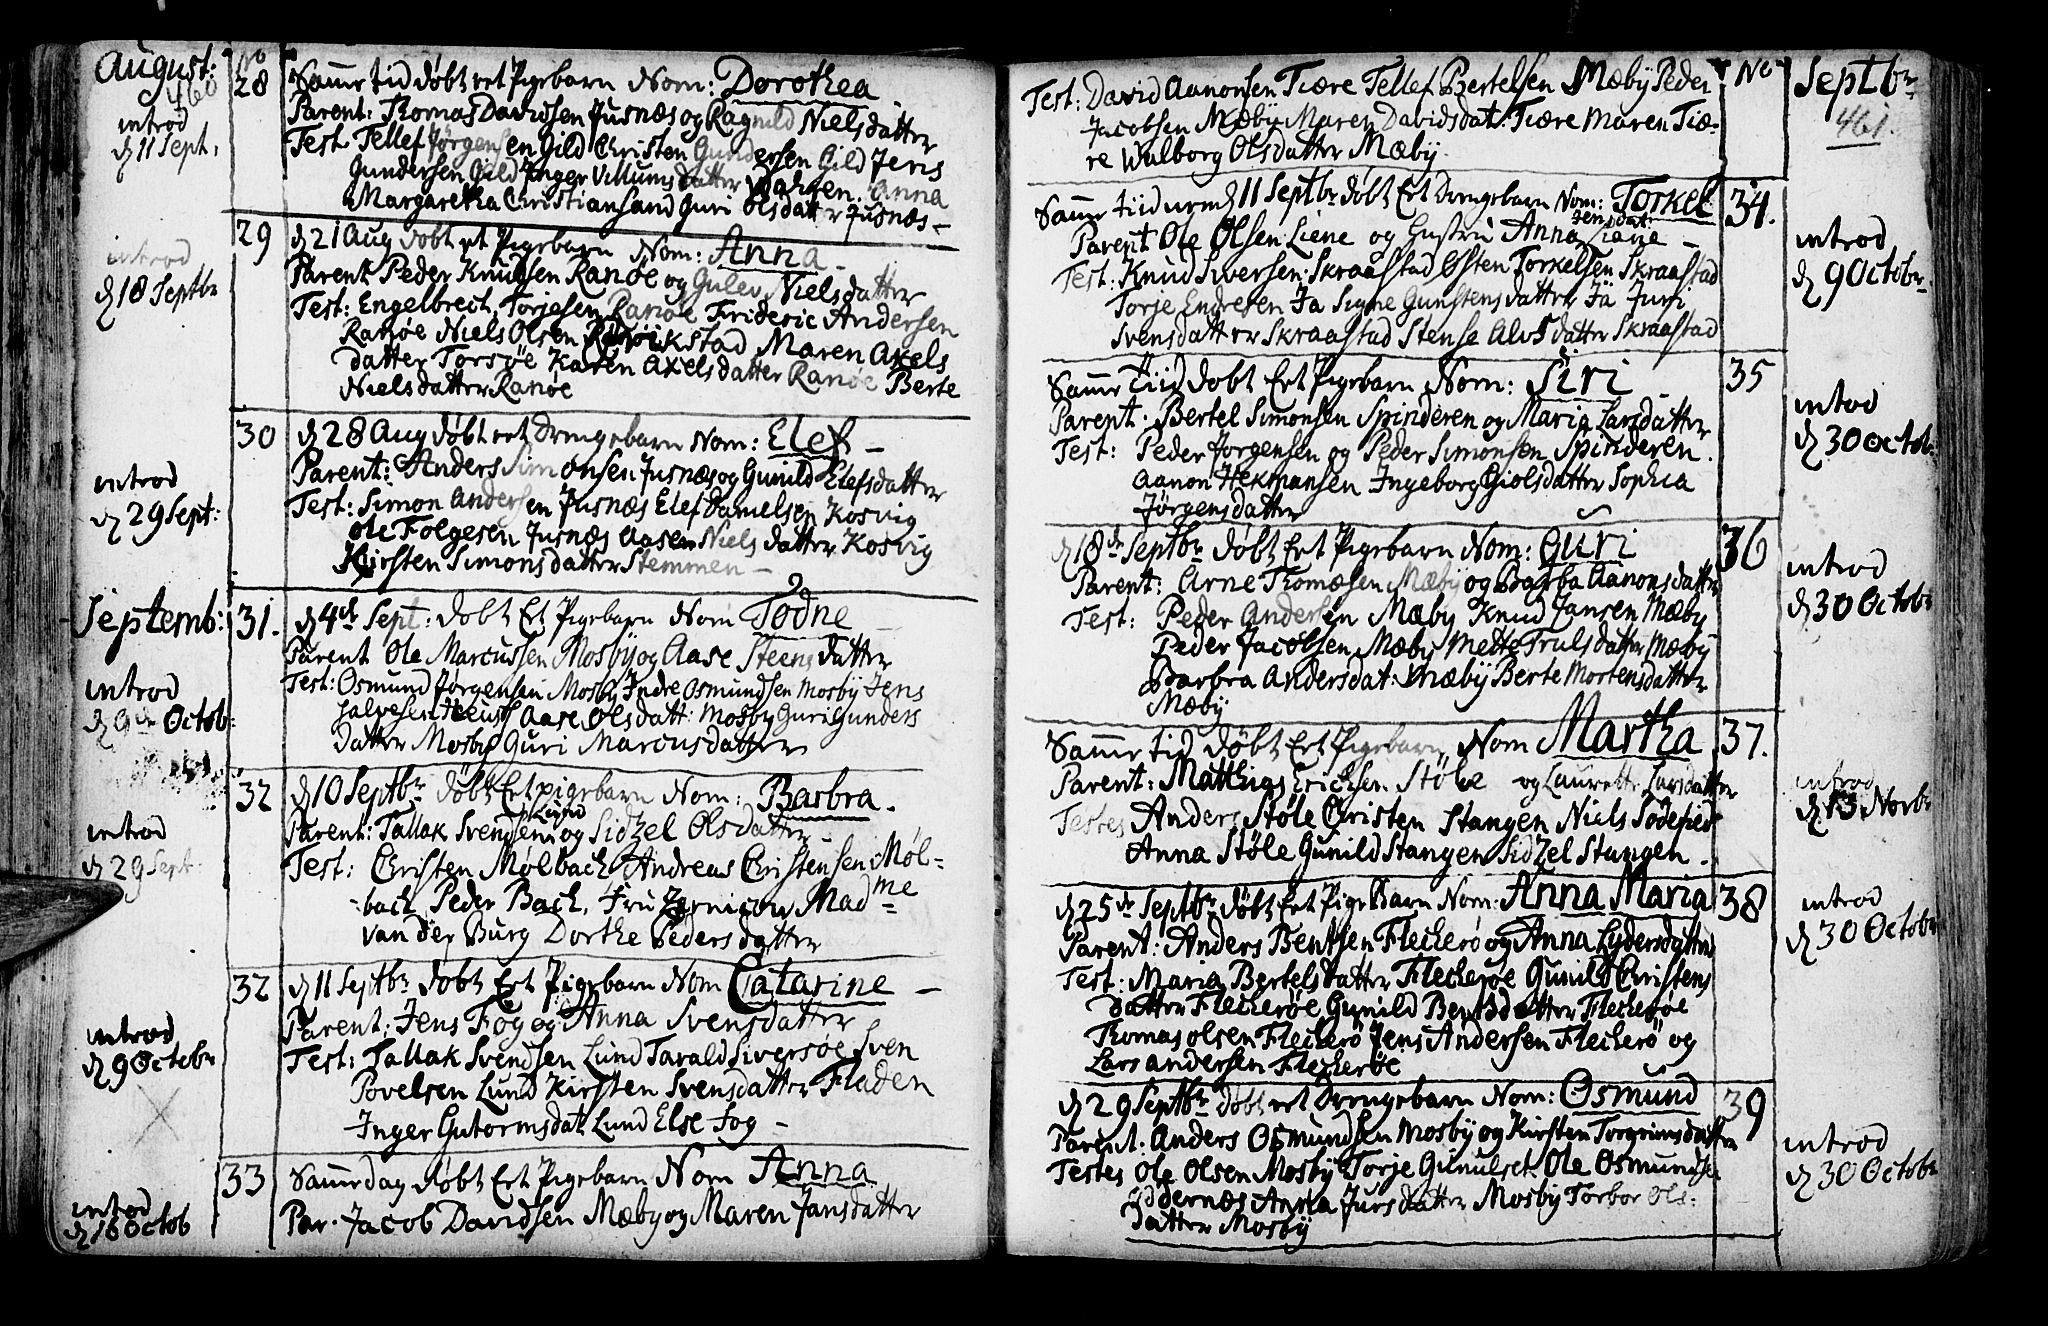 August:
460
No
28
introd
d 11 Sept,
Samme tid døbt et Pigebarn Nom: Dorothea
Parent: Thomas Davidsen Jusnæs og Ragnild Nielsdatter
Test Tellef Jørgensen Gild Christen Gundersen Gild Jens
Gundersen Gild Inger Villumsdatter Anna
Margaretha Christiansand Guri Olsdatter Jusnæs –
29
introd
d 18 Septbr
d 21 Aug døbt et Pigebarn Nom: Anna –
Parent Peder Knudsen Ranøe og Gulev Nielsdatter
Test: Engelbrect Torjesen Ranøe Frideric Andersen
Ranøe Niels Olsen Maren Axels
datter Torsøe Karen Axelsdatter Ranøe Berte
Nielsdatter Ranøe
30
introd
d 29 Sept:
d 28 Aug døbt et Drengebarn Nom: Elef –
Parent: Anders Simonsen Jusnæs og Gunild Elefsdatter
Test: Simon Andersen Jusnæs Elef Danielsen Kosvig
Ole Folgesen Jusnæs Aasen Nielsdatter Kosvig
Kirsten Simonsdatter Stemmen –
Septemb:
31.
introd
d 9de Octob:
d 4de Sept: døbt Et Pigebarn Nom Todne –
Parent Ole Marcussen Mosby og Aase Steensdatter
Test: Osmund Jørgensen Mosby Indre Osmundsen Mosby Jens
Salvesen Aase Olsdatt: Mosby Guri Gunders
datter Mosby Guri Marcusdatter
32
introd
d 29 Sept.
d 10 Septbr døbt Et pigebarn Nom: Barbra.
Lund
Parent: Tallak Svendsen og Sidzel Olsdatter
Test: Christen Mølbach Andreas Christensen Møl-
-bach Peder Bach, Fru Madme
van der Burg Dorthe Pedersdatter
32
introd
d 9 Octobr
d 11 Septbr døbt Et Pigebarn Nom Catarine –
Parent: Jens Fog og Anna Svensdatter
Test: Tallak Svendsen Lund Tarald Siversøe Sven
Povelsen Lund Kirsten Svensdatter Fladen
Inger Gutormsdat Lund Else Fog –
33
introd
d 16 Octob
Samme dag døbt Et Pigebarn Nom Anna
Par. Jacob Davidsen Mæby og Maren Jansdatter
No
Septbr
461.
Test: David Aanonsen Tiære Tellef Bertelsen Mæby Peder
Jacobsen Mæby Maren Davidsdat: Tiære Maren Tiæ-
re Walborg Olsdatter Mæby.
34.
introd
d 9 Octobr
Samme tiid d 11 Septbr døbt Et Drengebarn Nom: Torkel
Jensdat:
Parent Ole Olsen Liene og Hustru Anna Liene –
Test: Knud Siversen Skraastad Østen Torkelsen Skraastad
Torje Endresen Ja Signe Gunstensdatter Jä Juri
Svensdatter Skraastad Stense Alvsdatter Skraastad
35
introd
d 30 Octob:
Samme Tiid døbt Et Pigebarn Nom: Siri
Parent: Bertel Simonsen Spinderen og Maria Larsdatter
Test: Peder Jørgensen og Peder Simonsen Spinderen.
Aanon Hermansen Ingeborg Giolsdatter Sophia
Jørgensdatter
36
introd
d 30 Octobr
d 18de Septbr døbt Et Pigebarn Nom: Guri
Parent: Arne Thomæsen Mæby og Barba Aanonsdatter
Test: Peder Andersen Mæby Knud Jansen Mæby
Peder Jacobsen Mæby Mette Trulsdatter Mæby
Barbra Andersdat: Mæby Berte Mortensdatter
Mæby
37.
introd
d 13 Novbr
Samme tid døbt Et Pigebarn Nom Martha
Parent: Matthias Erichsen Støle og Laurette Larsdatter
Testes Anders Støle Christen Stangen Niels Sødefied
Anna Støle Gunild Stangen Sidzel Stangen.
38
introd
d 30 Octobr
d 25de Septbr døbt Et Pigebarn Nom: Anna Maria
Parent: Anders Bentsen Flecherø og Anna Lydersdatter
Test: Maria Bertelsdatter Flecherøe Gunild Christens
datter Flecherøe Gunild Bentsdatter Flecherøe
Thomas Olsen Flecherø Jens Andersen Flecherø og
Lars Andersen Flecherøe
39
introd
d 30 Octobr
d 29 Septbr døbt et Drengebarn Nom: Osmund
Parent: Anders Osmundsen Mosby og Kirsten Torgrimsdatter
Testes Ole Olsen Mosby Torje Gunulfs: Ole Osmundsen
Oddernæs Anna Jursdatter Mosby Torbor Ols:
datter Mosby